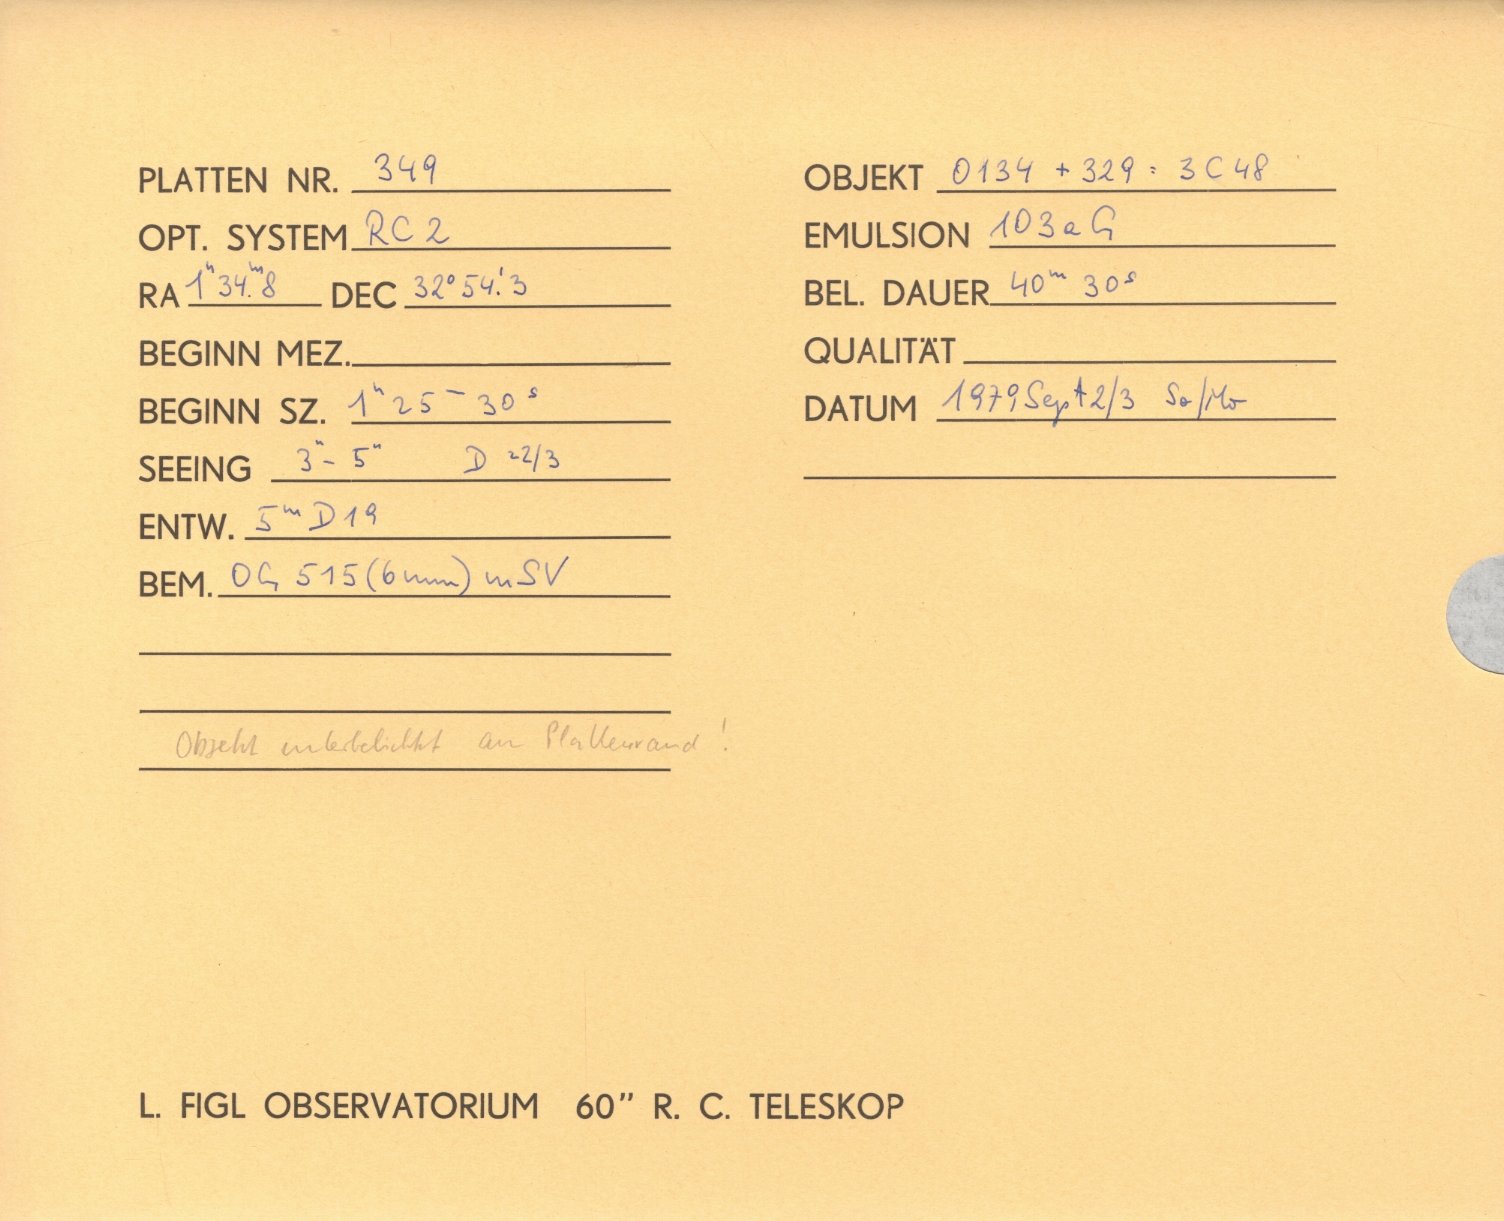 PLATTEN NR. 349
OPT. SYSTEM RC 2
RA 1ʰ34.ᵐ8 DEC 32°54.'3
BEGINN MEZ.
BEGINN SZ. 1ʰ25ᵐ30ˢ
SEEING 3"-5" D 22/3
ENTW. 5ᵐ D19
BEM. OG 515 (6mm) mSV
Objekt unterbelichtet am Plattenrand!
OBJEKT 0134 + 329 = 3C48
EMULSION 103aG
BEL. DAUER 40ᵐ 30ˢ
QUALITÄT
DATUM 1979 Sept 2/3 So/Mo
L. FIGL OBSERVATORIUM 60" R. C. TELESKOP